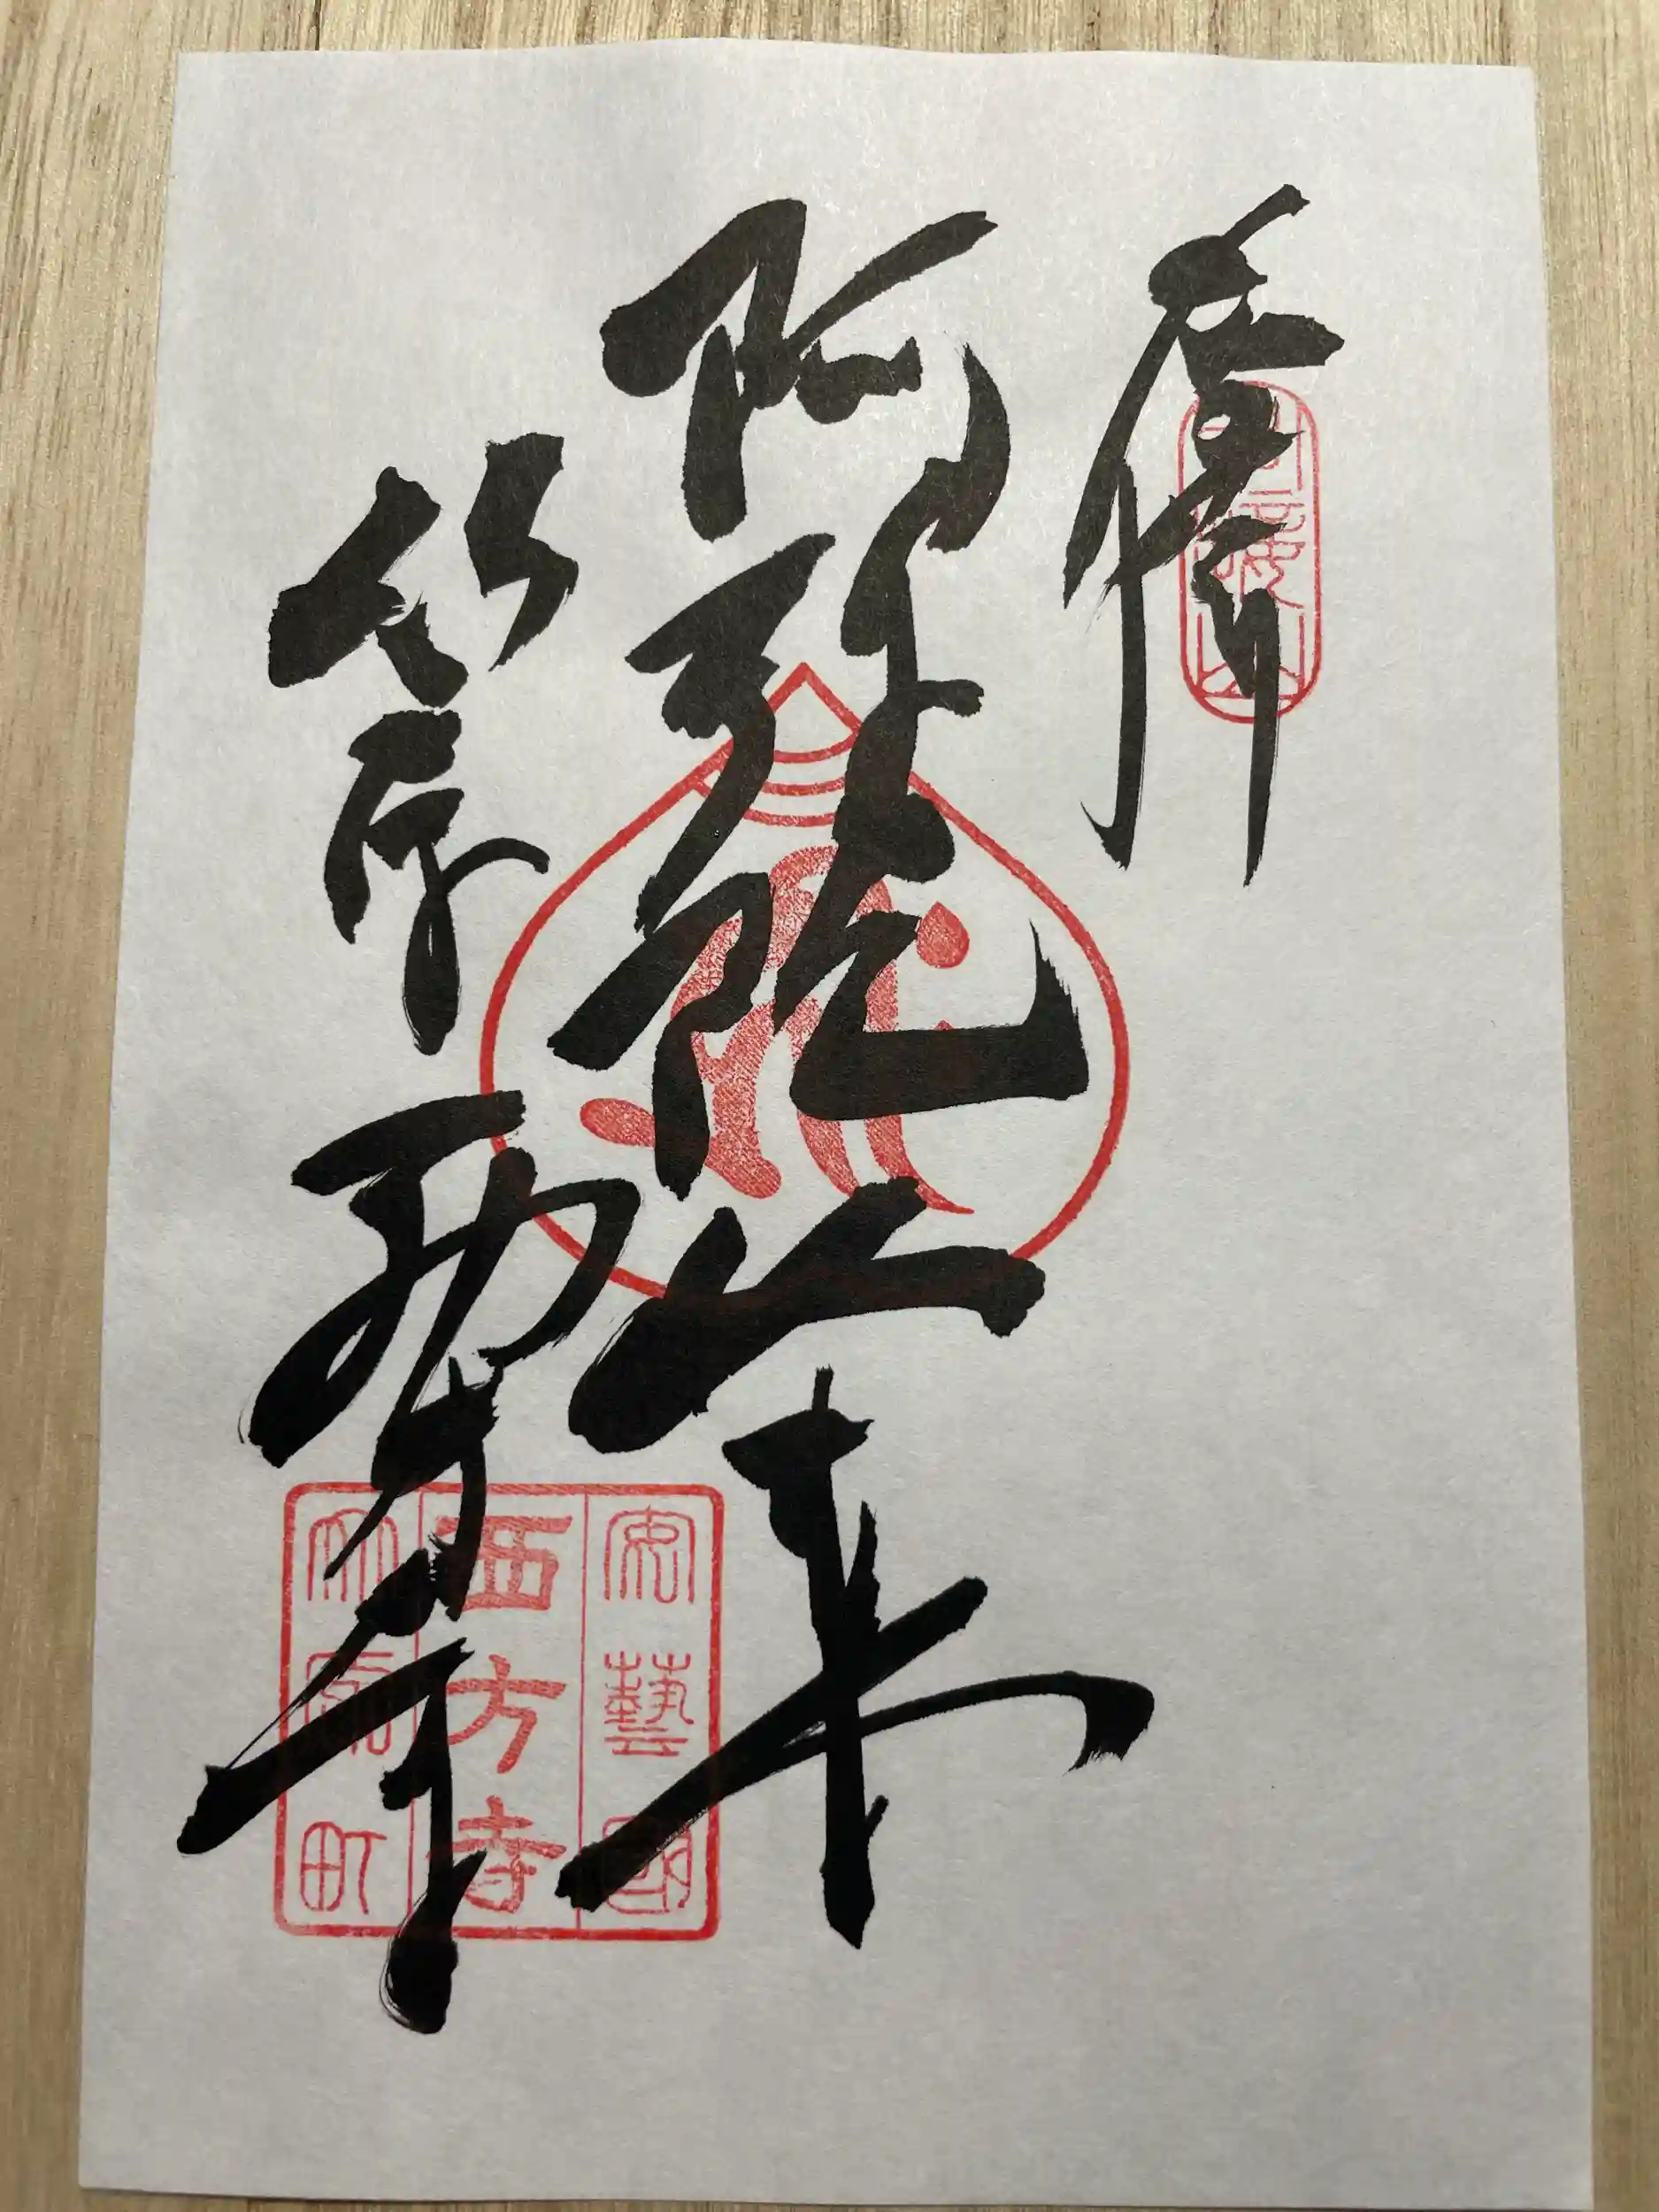 阿弥陀如来
竹原 西方寺
安藝國
西方寺
竹原町